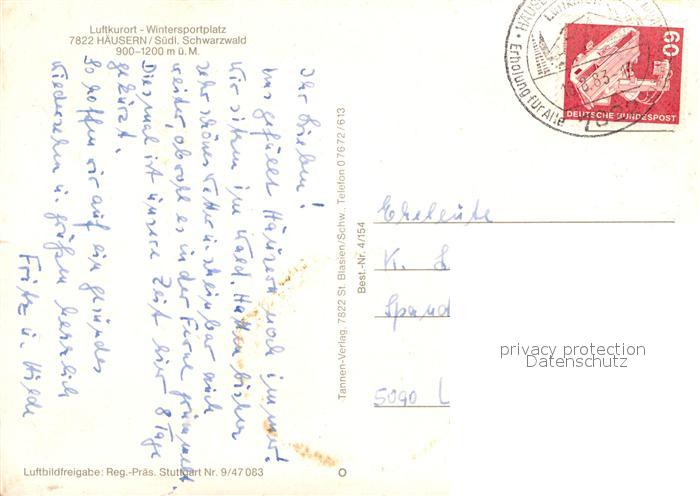 Luftkurort - Wintersportplatz
7822 HÄUSERN / Südl. Schwarzwald
900–1200 m ü. M.
Ihr Lieben!
uns gefällt Häusern noch immer!
Wir sitzen im Wald. Hatten bisher
sehr schönes Wetter u. scheinbar auch
weiter, obwohl es in der Ferne grummelt.
Diesmal ist unsere Zeit hier 8 Tage
gekürzt.
So hoffen wir auf ein gesundes
Wiedersehn u. grüßen herzlich
Fritz u. Hilde
Luftbildfreigabe: Reg.-Präs. Stuttgart Nr. 9/47 083
Tannen-Verlag, 7822 St. Blasien/Schw., Telefon 07672/613
Best.-Nr. 4/154
Erholung für Alle
.83
7822
60
DEUTSCHE BUNDESPOST
Eheleute
K. L
Spand
5090 L
privacy protection
Datenschutz